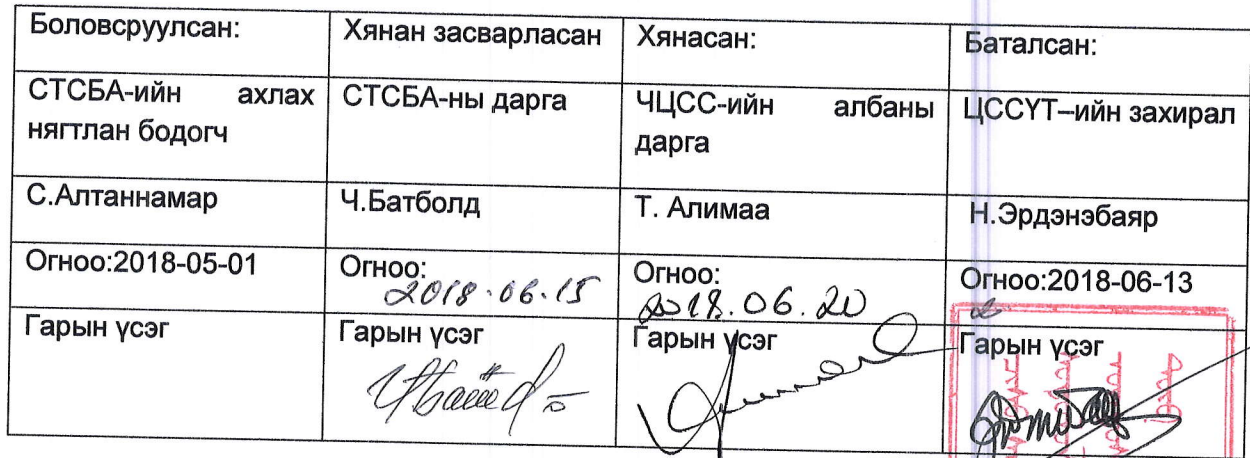 Боловсруулсан:
Хянан засварласан
Хянасан:
Баталсан:
СТСБА-ийн ахлах
нягтлан бодогч
СТСБА-ны дарга
ЧЦСС-ийн албаны
дарга
ЦССҮТ–ийн захирал
С.Алтаннамар
Ч.Батболд
Т. Алимаа
Н.Эрдэнэбаяр
Огноо:2018-05-01
Огноо:
2018.06.15
Огноо:
2018.06.20
Огноо:2018-06-13
Гарын үсэг
Гарын үсэг
Гарын үсэг
Гарын үсэг